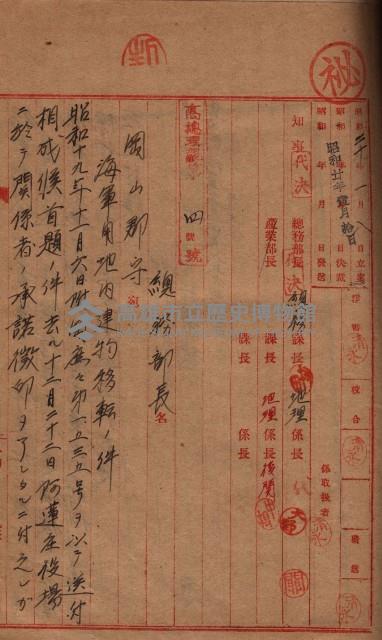 秘
昭和二十年一月八日立案
昭和廿年壹月拾日決裁
昭和 年 月 日發送
淨書
校合
發送
係取扱者
知事
代決
總務部長
產業部長
課長
地理係長
課長
地理係長後閱
高總理
四號
總務部長名
岡山郡守宛
海軍用地內建物移転ノ件
昭和十九年十二月六日附
第一五三五号ヲ以テ送付
相成候首題ノ件去ル十二月二十二日阿蓮庄役場
ニ於テ關係者ノ承諾徵印ヲ了シタルニ付之レガ
高雄市立歷史博物館